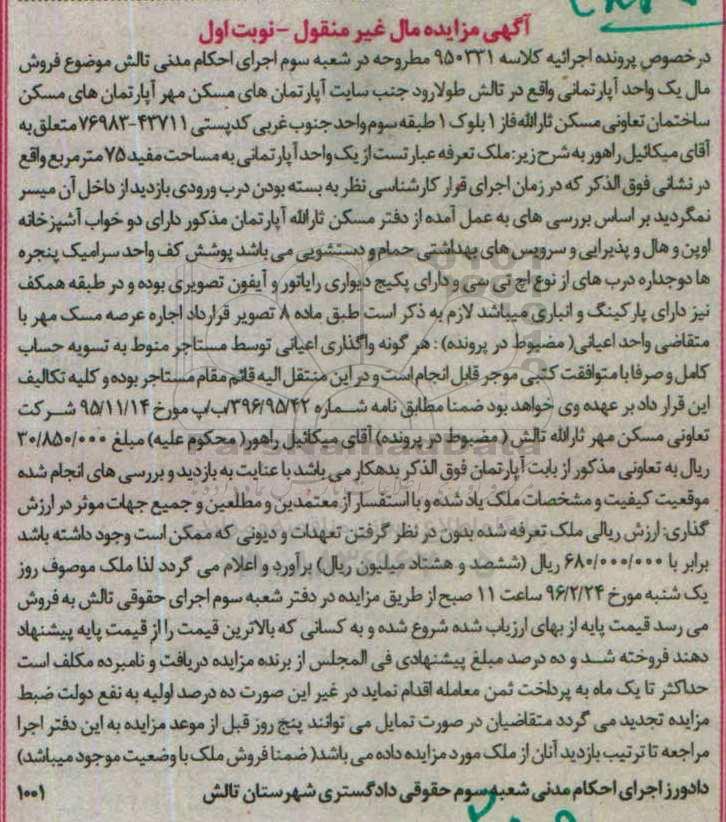 آگهی مزایده مال غیر منقول - نوبت اول
درخصوص پرونده اجرائیه کلاسه ۹۵۰۳۳۱ مطروحه در شعبه سوم اجرای احکام مدنی تالش موضوع فروش
مال یک واحد آپارتمانی واقع در تالش طولارود جنب سایت آپارتمان های مسکن مهر آپارتمان های مسکن
ساختمان تعاونی مسکن ثارالله فاز ۱ بلوک ۱ طبقه سوم واحد جنوب غربی کدپستی ۴۳۷۱۱-۷۶۹۸۳ متعلق به
آقای میکائیل راهور به شرح زیر: ملک تعرفه عبارتست از یک واحد آپارتمانی به مساحت مفید ۷۵ مترمربع واقع
در نشانی فوق الذکر که در زمان اجرای قرار کارشناسی نظر به بسته بودن درب ورودی بازدید از داخل آن میسر
نمگردید بر اساس بررسی های به عمل آمده از دفتر مسکن ثارالله آپارتمان مذکور دارای دو خواب آشپزخانه
اوپن و هال و پذیرایی و سرویس های بهداشتی حمام و دستشویی می باشد پوشش کف واحد سرامیک پنجره
ها دوجداره درب های از نوع اچ تی سی و دارای پکیج دیواری رایاتور و آیفون تصویری بوده و در طبقه همکف
نیز دارای پارکینگ و انباری میباشد لازم به ذکر است طبق ماده ۸ تصویر قرارداد اجاره عرصه مسک مهر با
متقاضی واحد اعیانی( مضبوط در پرونده) : هر گونه واگذاری اعیانی توسط مستاجر منوط به تسویه حساب
کامل و صرفا با متوافقت کتبی موجر قابل انجام است و در این منتقل الیه قائم مقام مستاجر بوده و کلیه تکالیف
این قرار داد بر عهده وی خواهد بود ضمنا مطابق نامه شماره ۳۹۶/۹۵/۴۲/ب/پ مورخ ۹۵/۱۱/۱۴ شرکت
تعاونی مسکن مهر ثارالله تالش ( مضبوط در پرونده) آقای میکائیل راهور( محکوم علیه) مبلغ ۳۰/۸۵۰/۰۰۰
ریال به تعاونی مذکور از بابت آپارتمان فوق الذکر بدهکار می باشد با عنایت به بازدید و بررسی های انجام شده
موقعیت کیفیت و مشخصات ملک یاد شده و با استفسار از معتمدین و مطلعین و جمیع جهات موثر در ارزش
گذاری: ارزش ریالی ملک تعرفه شده بدون در نظر گرفتن تعهدات و دیونی که ممکن است وجود داشته باشد
برابر با ۶۸۰/۰۰۰/۰۰۰ ریال (ششصد و هشتاد میلیون ریال) برآورد و اعلام می گردد لذا ملک موصوف روز
یک شنبه مورخ ۹۶/۲/۲۴ ساعت ۱۱ صبح از طریق مزایده در دفتر شعبه سوم اجرای حقوقی تالش به فروش
می رسد قیمت پایه از بهای ارزیاب شده شروع شده و به کسانی که بالاترین قیمت را از قیمت پایه پیشنهاد
دهند فروخته شد و ده درصد مبلغ پیشنهادی فی المجلس از برنده مزایده دریافت و نامبرده مکلف است
حداکثر تا یک ماه به پرداخت ثمن معامله اقدام نماید در غیر این صورت ده درصد اولیه به نفع دولت ضبط
مزایده تجدید می گردد متقاضیان در صورت تمایل می توانند پنج روز قبل از موعد مزایده به این دفتر اجرا
مراجعه تا ترتیب بازدید آنان از ملک مورد مزایده داده می باشد( ضمنا فروش ملک با وضعیت موجود میباشد)
دادورز اجرای احکام مدنی شعبه سوم حقوقی دادگستری شهرستان تالش ۱۰۰۱